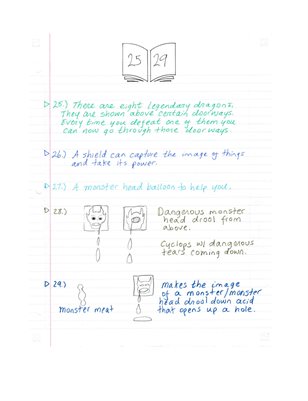 25 29
▷ 25.) There are eight legendary dragons.
They are shown above certain doorways.
Every time you defeat one of them you
can now go through those doorways.
▷ 26.) A shield can capture the image of things
and take its power.
▷ 27.) A monster head balloon to help you.
▷ 28.) Dangerous monster
head drool from
above.
Cyclops w/ dangerous
tears coming down.
▷ 29.) makes the image
of a monster/monster
head drool down acid
that opens up a hole.
monster meat